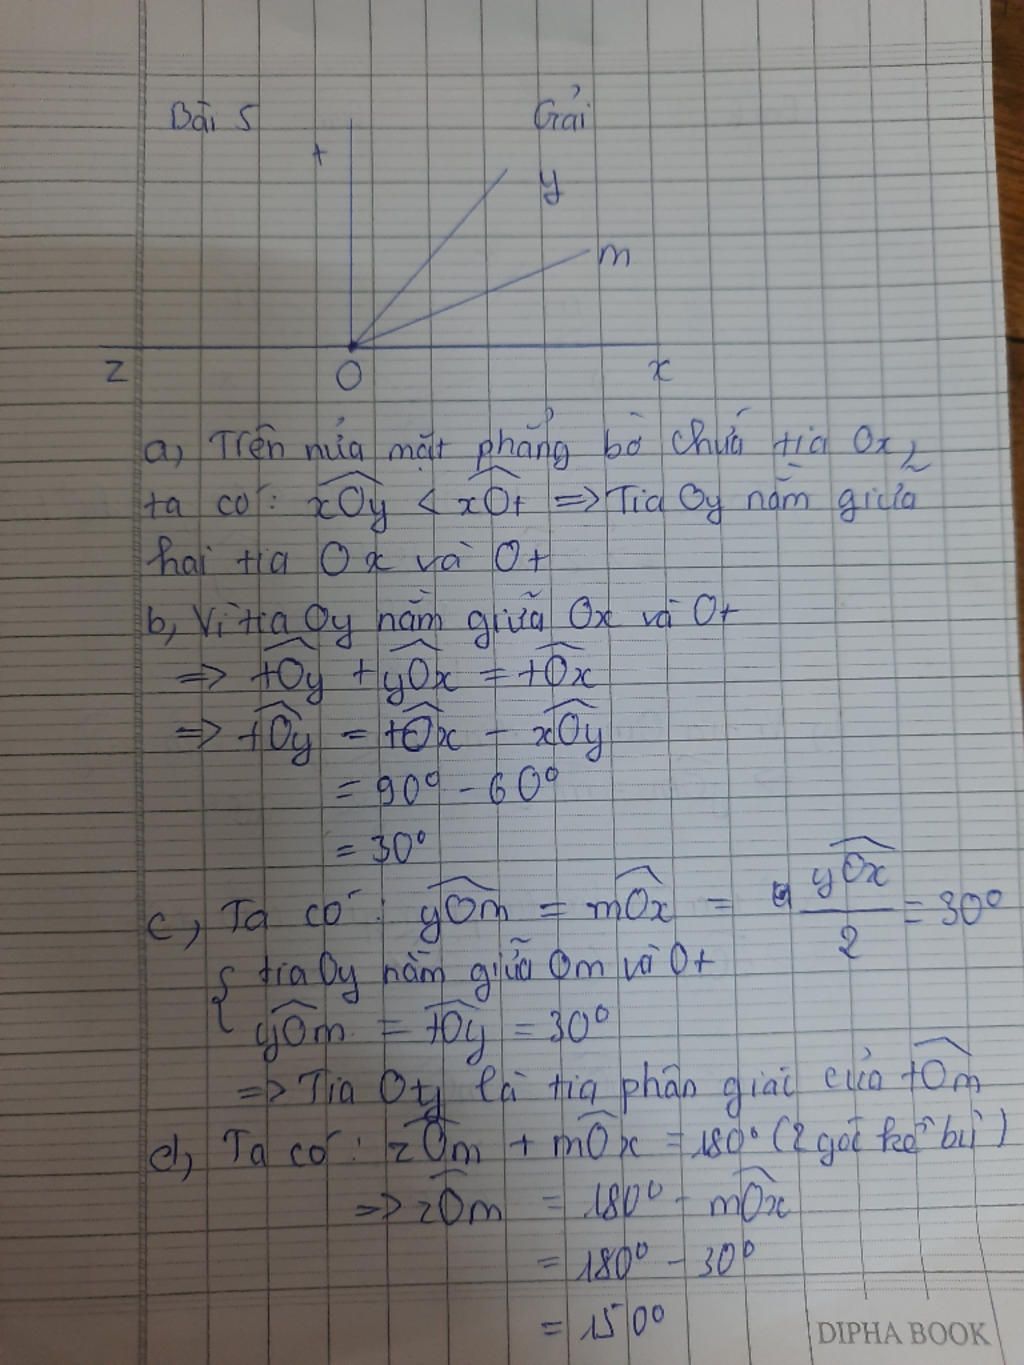 Bài 5
Giải
t
y
m
z
O
x
a, Trên nửa mặt phẳng bờ chứa tia Ox,
ta có: xOy < xOt => Tia Oy nằm giữa
hai tia Ox và Ot
b, Vì tia Oy nằm giữa Ox và Ot
=> tOy + yOx = tOx
=> tOy = tOx - xOy
= 90° - 60°
= 30°
c, Ta có: yOm = mOx = yOx/2 = 30°
{ tia Oy nằm giữa Om và Ot
yOm = tOy = 30°
=> Tia Oy là tia phân giác của tOm
d, Ta có: zOm + mOx = 180° (2 góc kề bù)
=> zOm = 180° - mOx
= 180° - 30°
= 150°
DIPHA BOOK